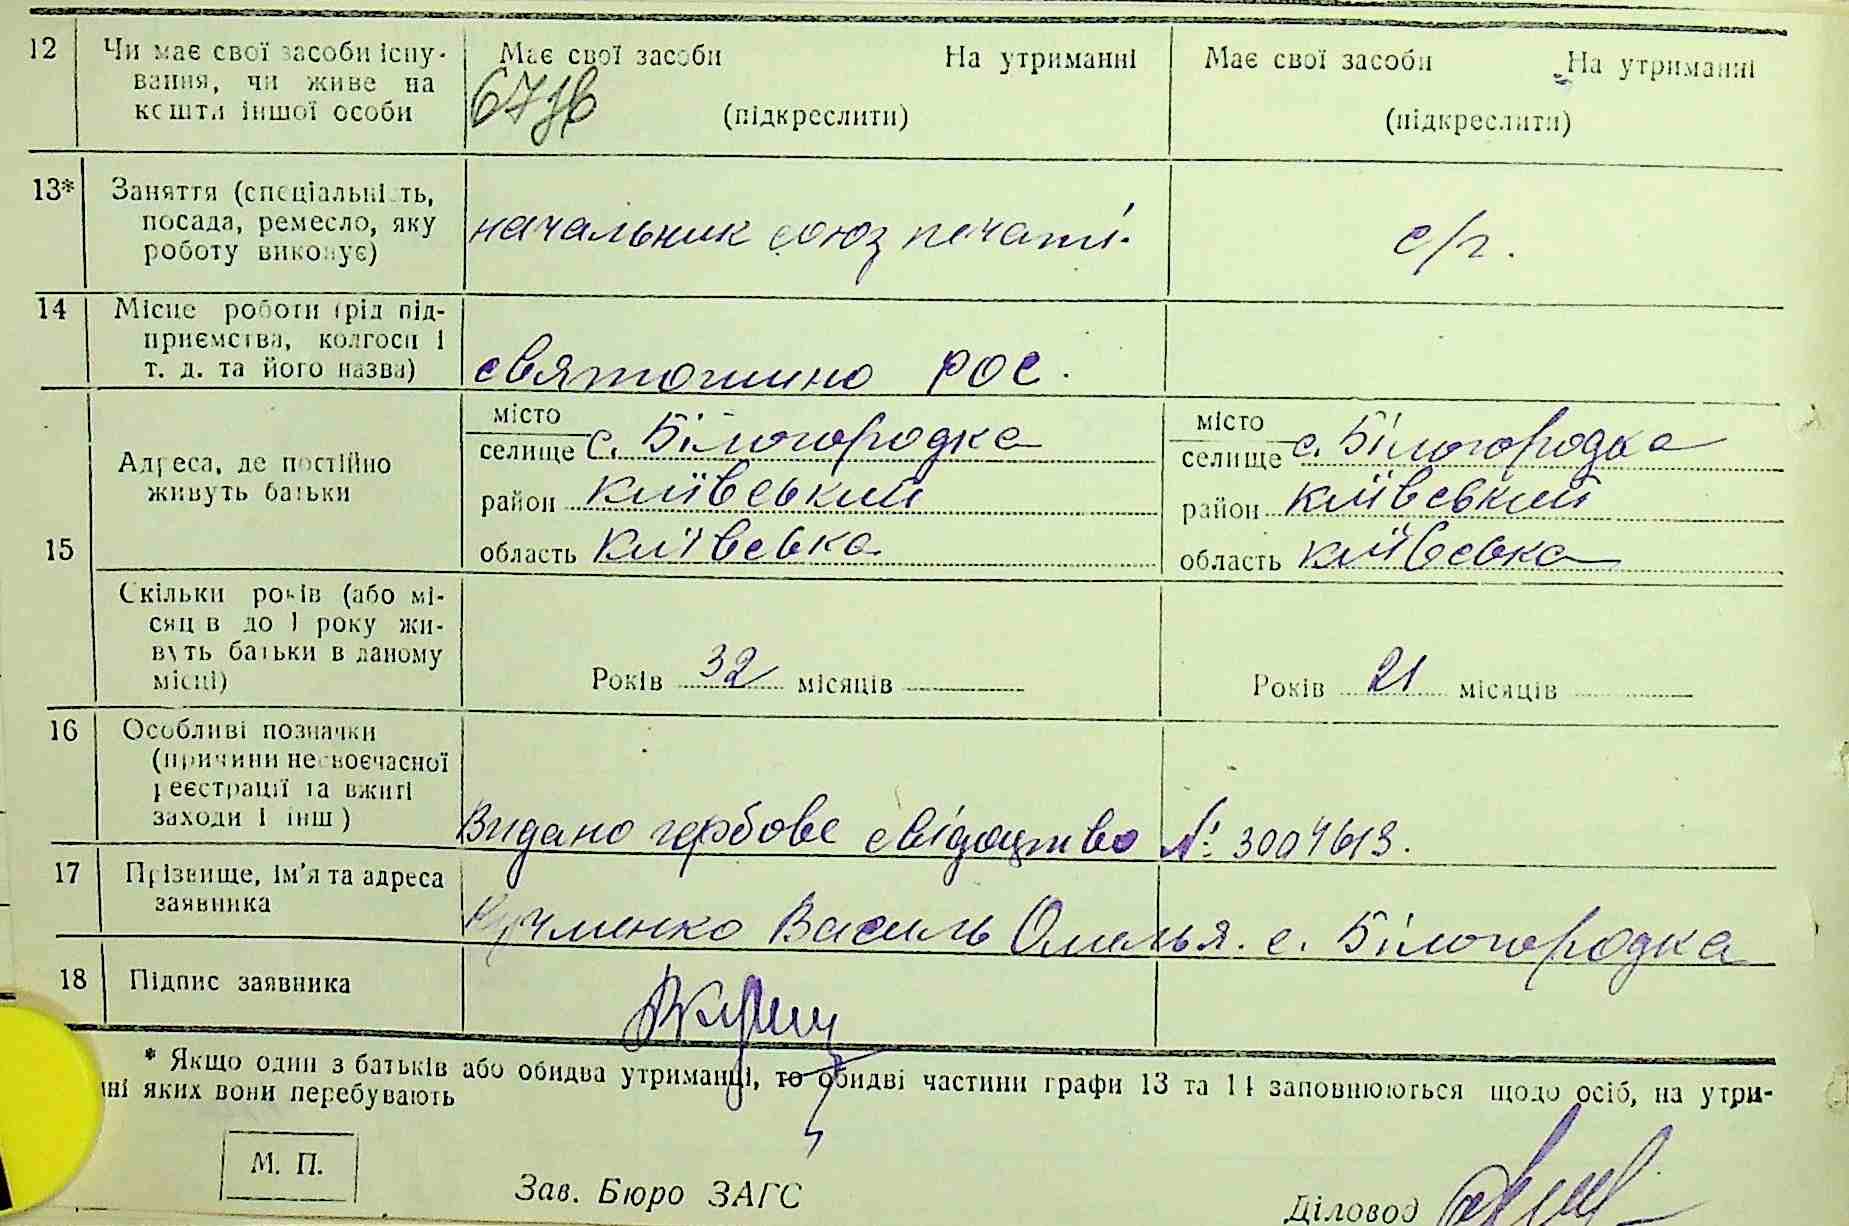 12 Чи має свої засоби існу- Має свої засоби На утриманні Має свої засоби На утриманні
вання, чи живе на
кошти іншої особи (підкреслити) (підкреслити)
13* Заняття (спеціальність,
посада, ремесло, яку начальник союз печаті. с/г.
роботу виконує)
14 Місце роботи (рід під-
приємства, колгосп і
т. д. та його назва) святошино РОС.
місто місто
селище с. Білогородка селище с. Білогородка
15 Адреса, де постійно
живуть батьки район київський район київський
область київська область київська
Скільки років (або мі-
сяців до 1 року жи-
вуть батьки в даному
місці) Років 32 місяців Років 21 місяців
16 Особливі позначки
(причини несвоєчасної
реєстрації та вжиті
заходи і інш) Видано гербове свідоцтво № 3004613.
17 Прізвище, ім'я та адреса
заявника Кучменко Василь Омелья. с. Білогородка
18 Підпис заявника
* Якщо один з батьків або обидва утриманці, то обидві частини графи 13 та 14 заповнюються щодо осіб, на утри-
ні яких вони перебувають
М. П.
Зав. Бюро ЗАГС Діловод